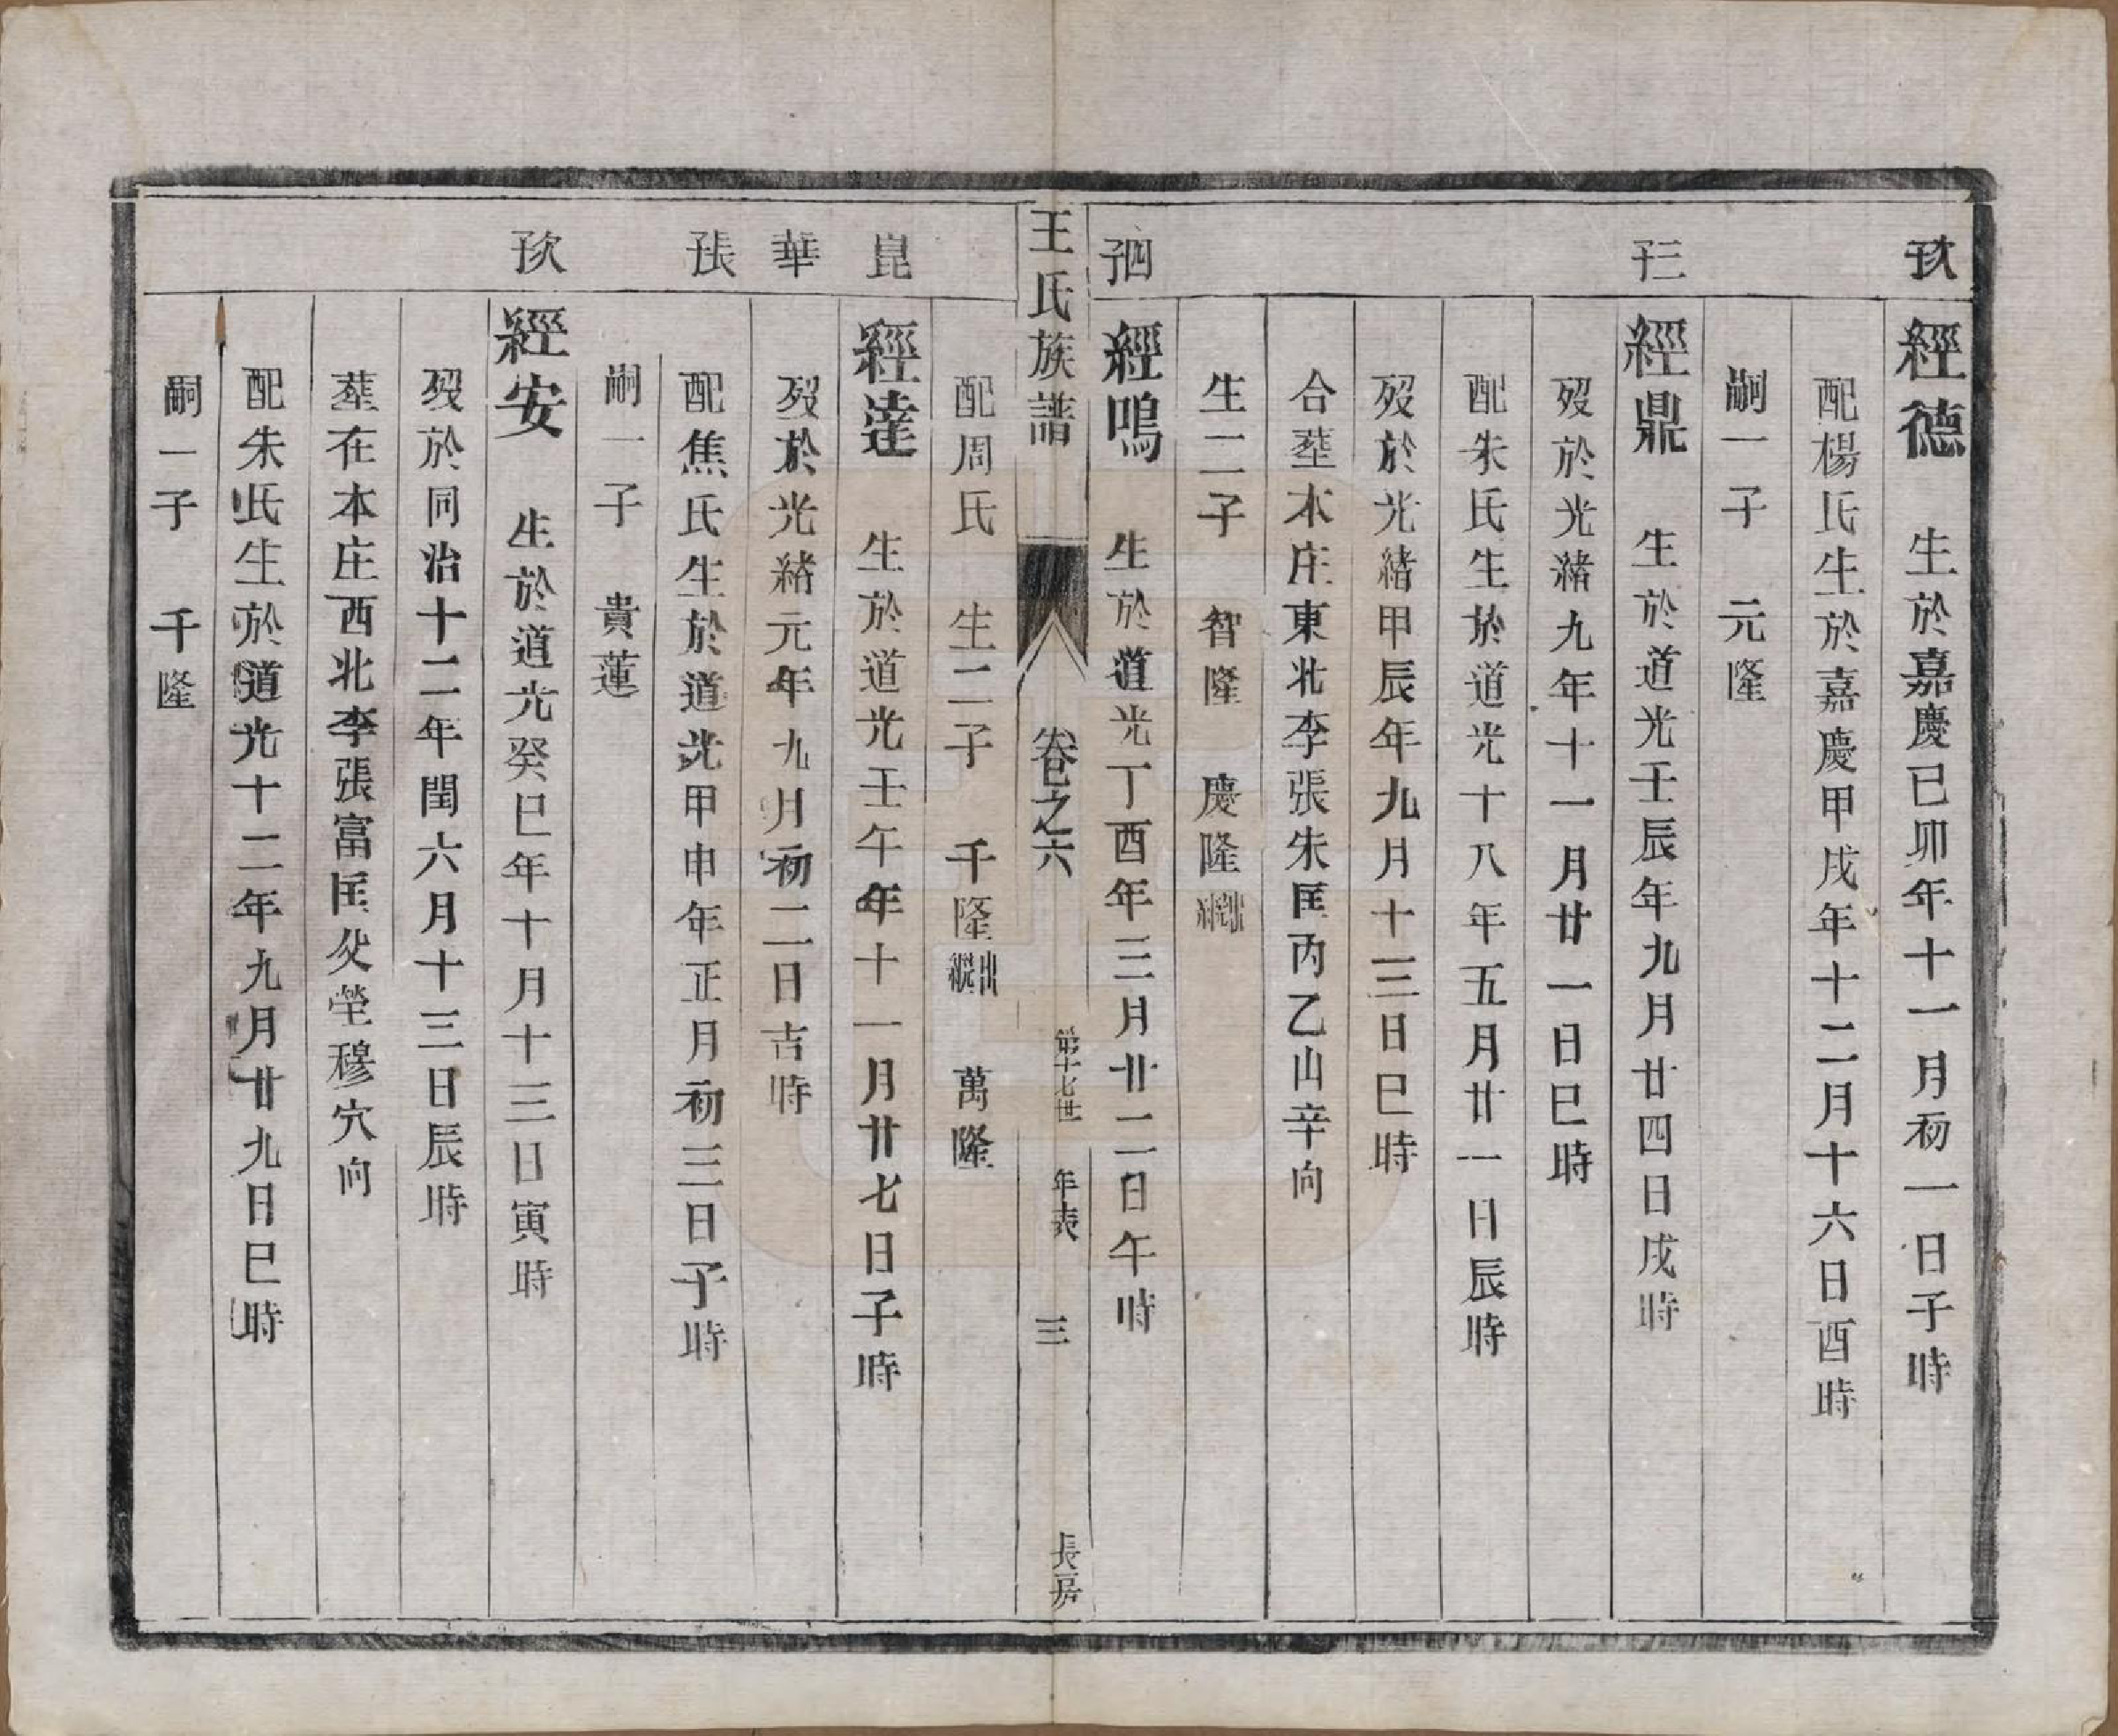 次子
經德 生於嘉慶己卯年十一月初一日子時
配楊氏生於嘉慶甲戌年十二月十六日酉時
嗣一子 元隆
三子
經鼎 生於道光壬辰年九月廿四日戌時
歿於光緒九年十一月廿一日巳時
配朱氏生於道光十八年五月廿一日辰時
歿於光緒甲辰年九月十三日巳時
合塟本庄東北李張朱匡丙乙山辛向
生二子 智隆 慶隆出繼
四子
經鳴 生於道光丁酉年三月廿二日午時
王氏族譜 卷之六 第十七世 年表 三 長房
配周氏 生二子 千隆出繼 萬隆
崑華長子
經達 生於道光壬午年十一月廿七日子時
歿於光緒元年九月初二日吉時
配焦氏生於道光甲申年正月初三日子時
嗣一子 貴蓮
次子
經安 生於道光癸巳年十月十三日寅時
歿於同治十二年閏六月十三日辰時
塟在本庄西北李張富匡父塋穆穴向
配朱氏生於道光十二年九月廿九日巳時
嗣一子 千隆